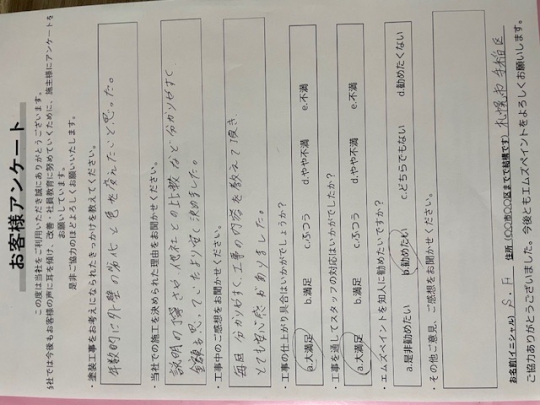 お客様アンケート
この度は当社をご利用いただき誠にありがとうございます。
当社では今後もお客様の声に耳を傾け、改善・社員教育に努めていくために、施主様にアンケートを
お願いしています。
是非ご協力のほどよろしくお願いいたします。
・塗装工事をお考えになられたきっかけを教えてください。
年数的に外壁の劣化と色を変えたいと思った。
・当社での施工を決められた理由をお聞かせください。
説明の丁寧さや他社との比較など分かりやすく
金額も思っていたより安く決めました。
・工事中のご感想をお聞かせください。
毎回、分かりやすく、工事の内容を教えて頂き
とても安心感がありました。
・工事の仕上がり具合はいかがでしょうか？
a.大満足 b.満足 c.ふつう d.やや不満 e.不満
・工事を通してスタッフの対応はいかがでしたか？
a.大満足 b.満足 c.ふつう d.やや不満 e.不満
・エムズペイントを知人に勧めたいですか？
a.是非勧めたい b.勧めたい c.どちらでもない d.勧めたくない
・その他ご意見、ご感想をお聞かせください。
お名前(イニシャル) S.A 住所(〇〇市〇〇区までで結構です) 札幌市手稲区
ご協力ありがとうございました。今後ともエムズペイントをよろしくお願いします。